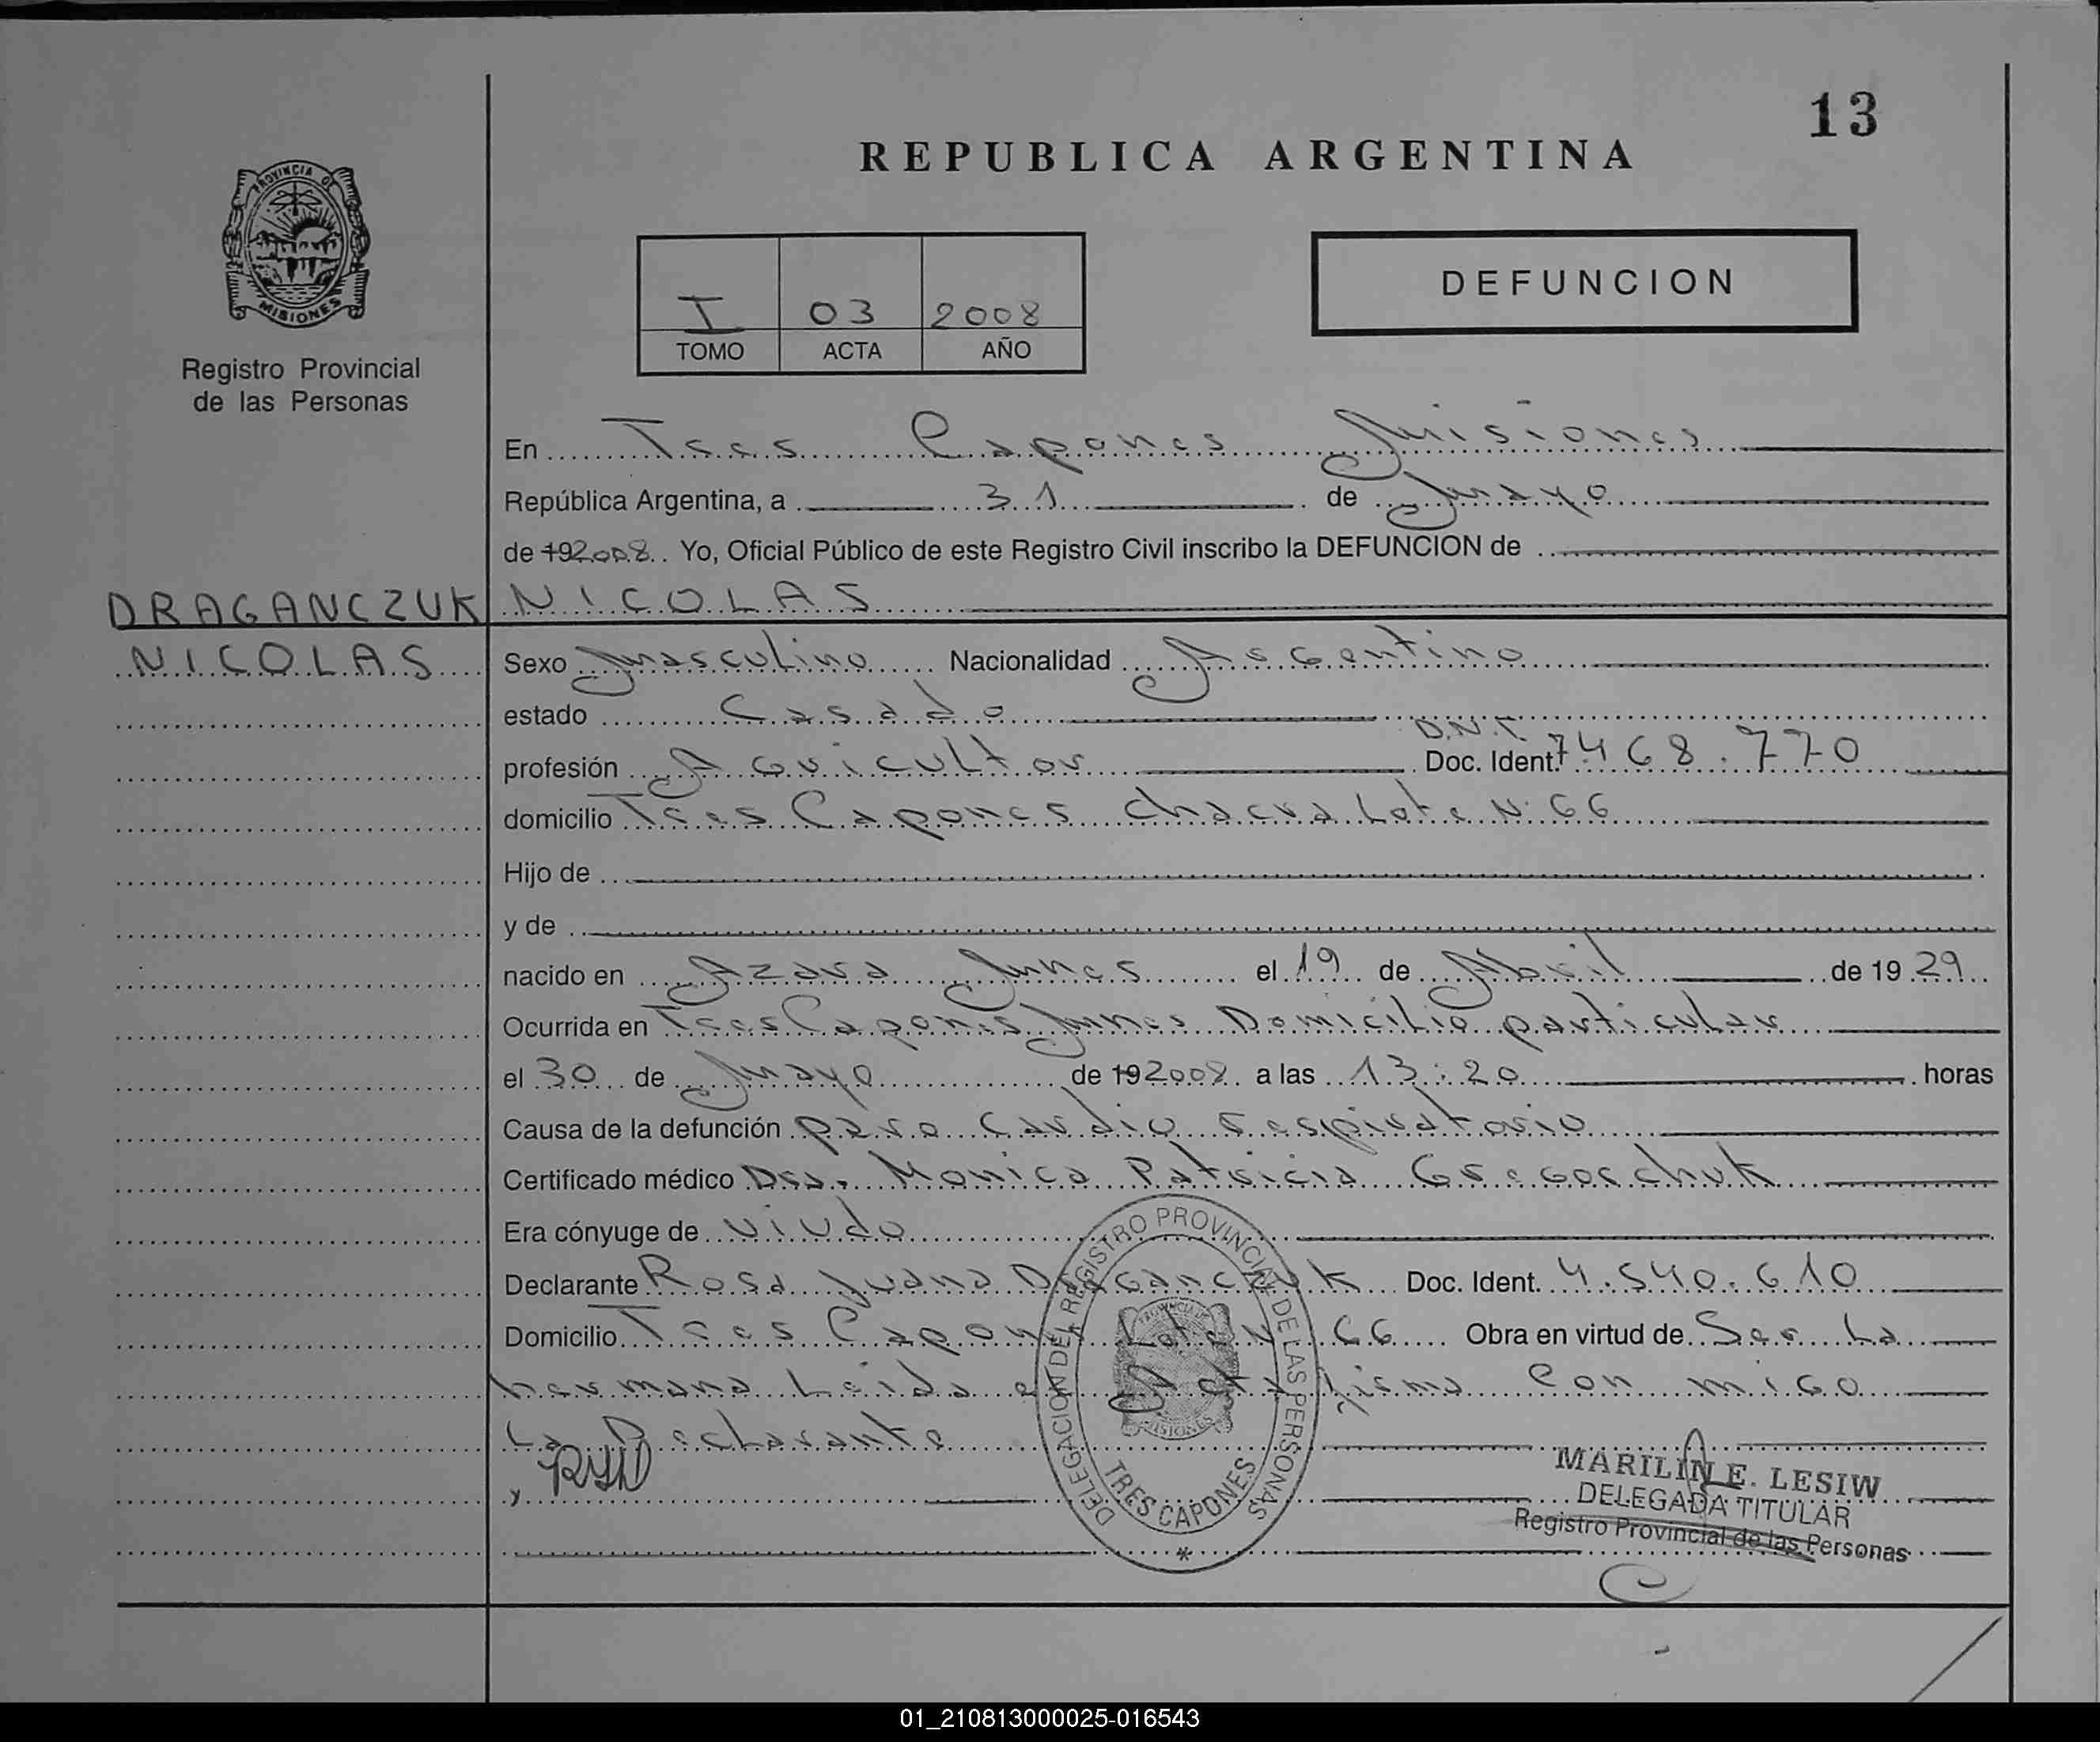 13
REPUBLICA ARGENTINA
PROVINCIA DE
MISIONES
Registro Provincial
de las Personas
I 03 2008
TOMO ACTA AÑO
DEFUNCION
En Tres Capones Misiones
República Argentina, a 31 de Mayo
de 192008 Yo, Oficial Público de este Registro Civil inscribo la DEFUNCION de
DRAGANCZUK NICOLAS
NICOLAS
Sexo Masculino Nacionalidad Argentino
estado Casado
D.N.I.
profesión Agricultor Doc. Ident. 7468.770
domicilio Tres Capones Chacra Lote N° 66
Hijo de
y de
nacido en Azara Mnes el 19 de Abril de 1929
Ocurrida en Tres Capones Mnes Domicilio particular
el 30 de Mayo de 192008 a las 13:20 horas
Causa de la defunción paro Cardio respiratorio
Certificado médico Dra. Monica Patricia Gregorchuk
Era cónyuge de viudo
Declarante Rosa Juana Draganczuk Doc. Ident. 4.540.610
Domicilio Tres Capones Lote N° 66 Obra en virtud de Ser La
hermana Leida el Acta firma Con migo
La Declarante
DELEGACION DEL REGISTRO PROVINCIAL DE LAS PERSONAS
TRES CAPONES
MARILIN E. LESIW
DELEGADA TITULAR
Registro Provincial de las Personas
01_210813000025-016543